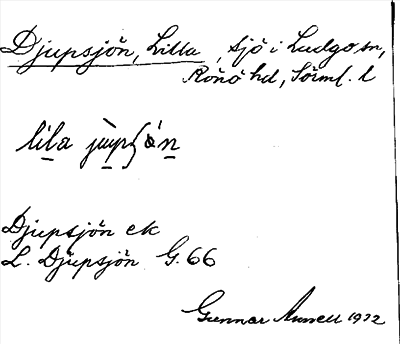 Djupsjön, Lilla, sjö i Ludgo sn,
Rönö hd, Sörml. l
lila jùpʃón
Djupsjön ek
L. Djupsjön G. 66
Gunnar 1922